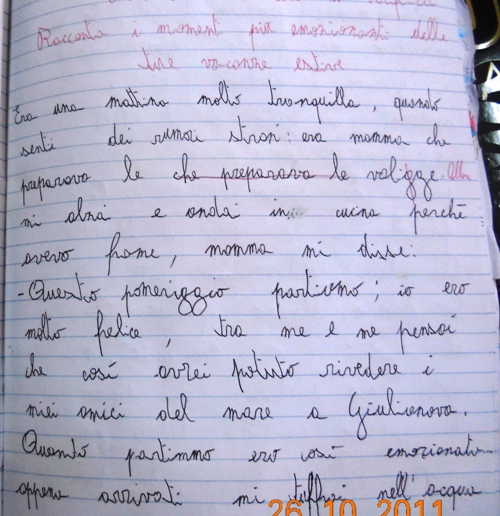 Racconta i momenti più emozionanti delle
tue vacanze estive
Era una mattina molto tranquilla, quando
senti dei rumori strani: era mamma che
preparava le che preparava le valigge. Allora
mi alzai e andai in cucina perché
avevo fame, mamma mi disse:
-Questo pomeriggio partiamo; io ero
molto felice, tra me e me pensai
che così avrei potuto rivedere i
miei amici del mare a Giulianova.
Quando partimmo ero così emozionato
appena arrivati mi tuffai nell'acqua
26 10 2011